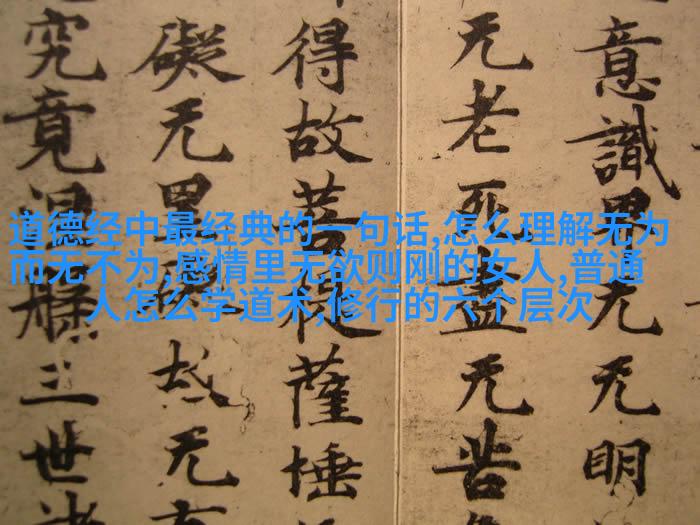 道德经中最经典的一句话,怎么理解无为
而无不为,感情里无欲则刚的女人,普通
人怎么学道术,修行的六个层次
意識界无无明
无老死盡无苦
得故菩提薩埵
礙无罣礙故无有
究竟涅槃三世諸